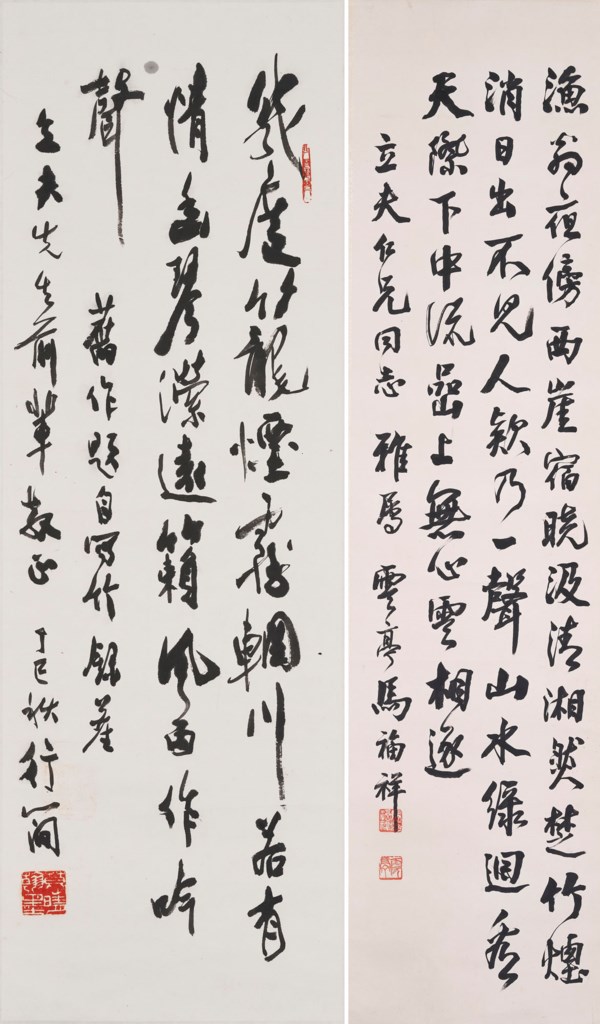 漁翁夜傍西崖宿曉汲清湘然楚竹煙
消日出不見人欸乃一聲山水綠迴看
天際下中流嵒上無心雲相逐
立夫仁兄同志 雅屬 雲亭馬福祥
幾處籠煙霧輞川若有
情幽琴瀠遠籟風雨作吟
聲
舊作題自寫竹錄
立夫先生前輩教正 丁巳秋行簡